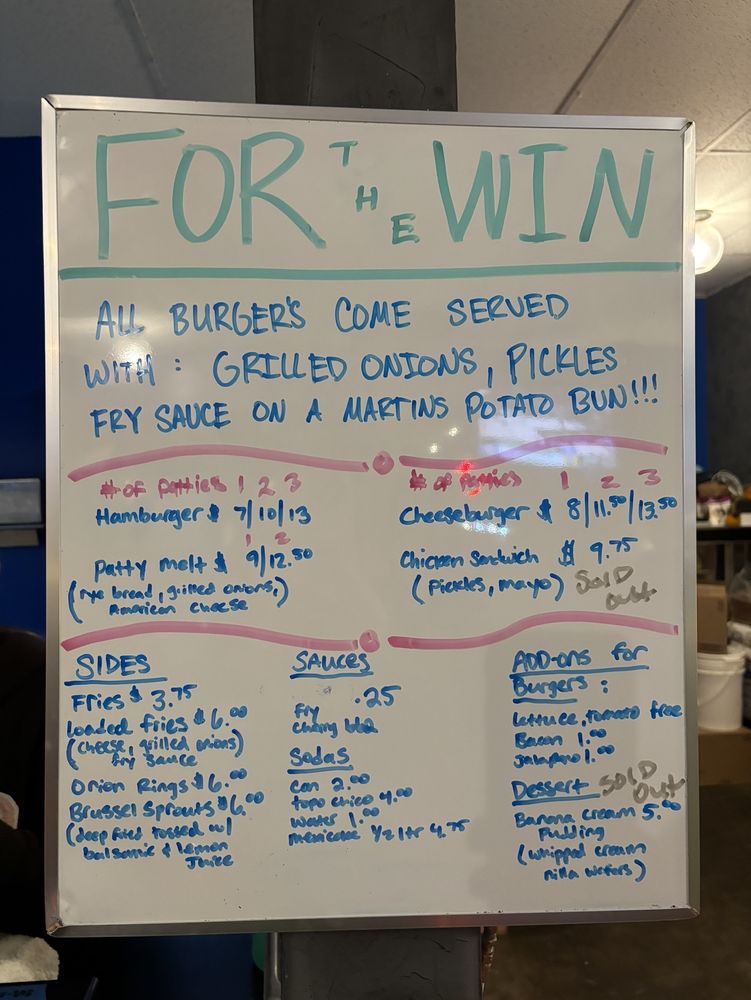 FOR THE WIN
ALL BURGER'S COME SERVED
WITH: GRILLED ONIONS, PICKLES
FRY SAUCE ON A MARTINS POTATO BUN!!!
# of patties 1 2 3
Hamburger $ 7/10/13
1 2
Patty melt $ 9/12.50
(rye bread, grilled onions,)
American cheese
# of patties 1 2 3
Cheeseburger $ 8/11.50/13.50
Chicken Sandwich $ 9.75
(Pickles, mayo) SOLD OUT
SIDES
Fries $ 3.75
Loaded fries $6.00
(cheese, grilled onions)
fry sauce
Onion Rings $6.00
Brussel Sprouts $6.00
(deep fried tossed w/
balsamic & lemon
Juice
SAUCES
.25
Fry
bbq
Sodas
Can 2.00
topo chico 4.00
Water 1.00
mexicoke 1/2 ltr 4.75
ADD-ons for
Burgers:
Lettuce, tomato free
Bacon 1.00
Jalapeno 1.00
Dessert SOLD OUT
Banana cream 5.00
Pudding
(whipped cream
nilla wafers)